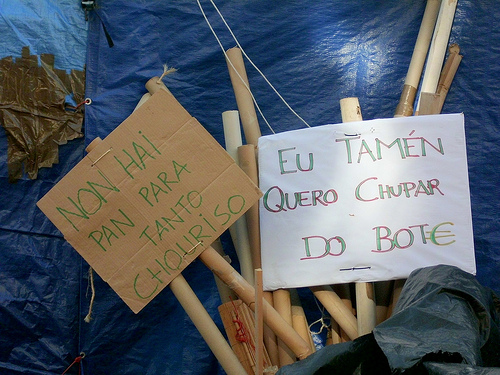 NON HAI
PAN PARA
TANTO
CHOURISO
EU TAMÉN
QUERO CHUPAR
DO BOT€